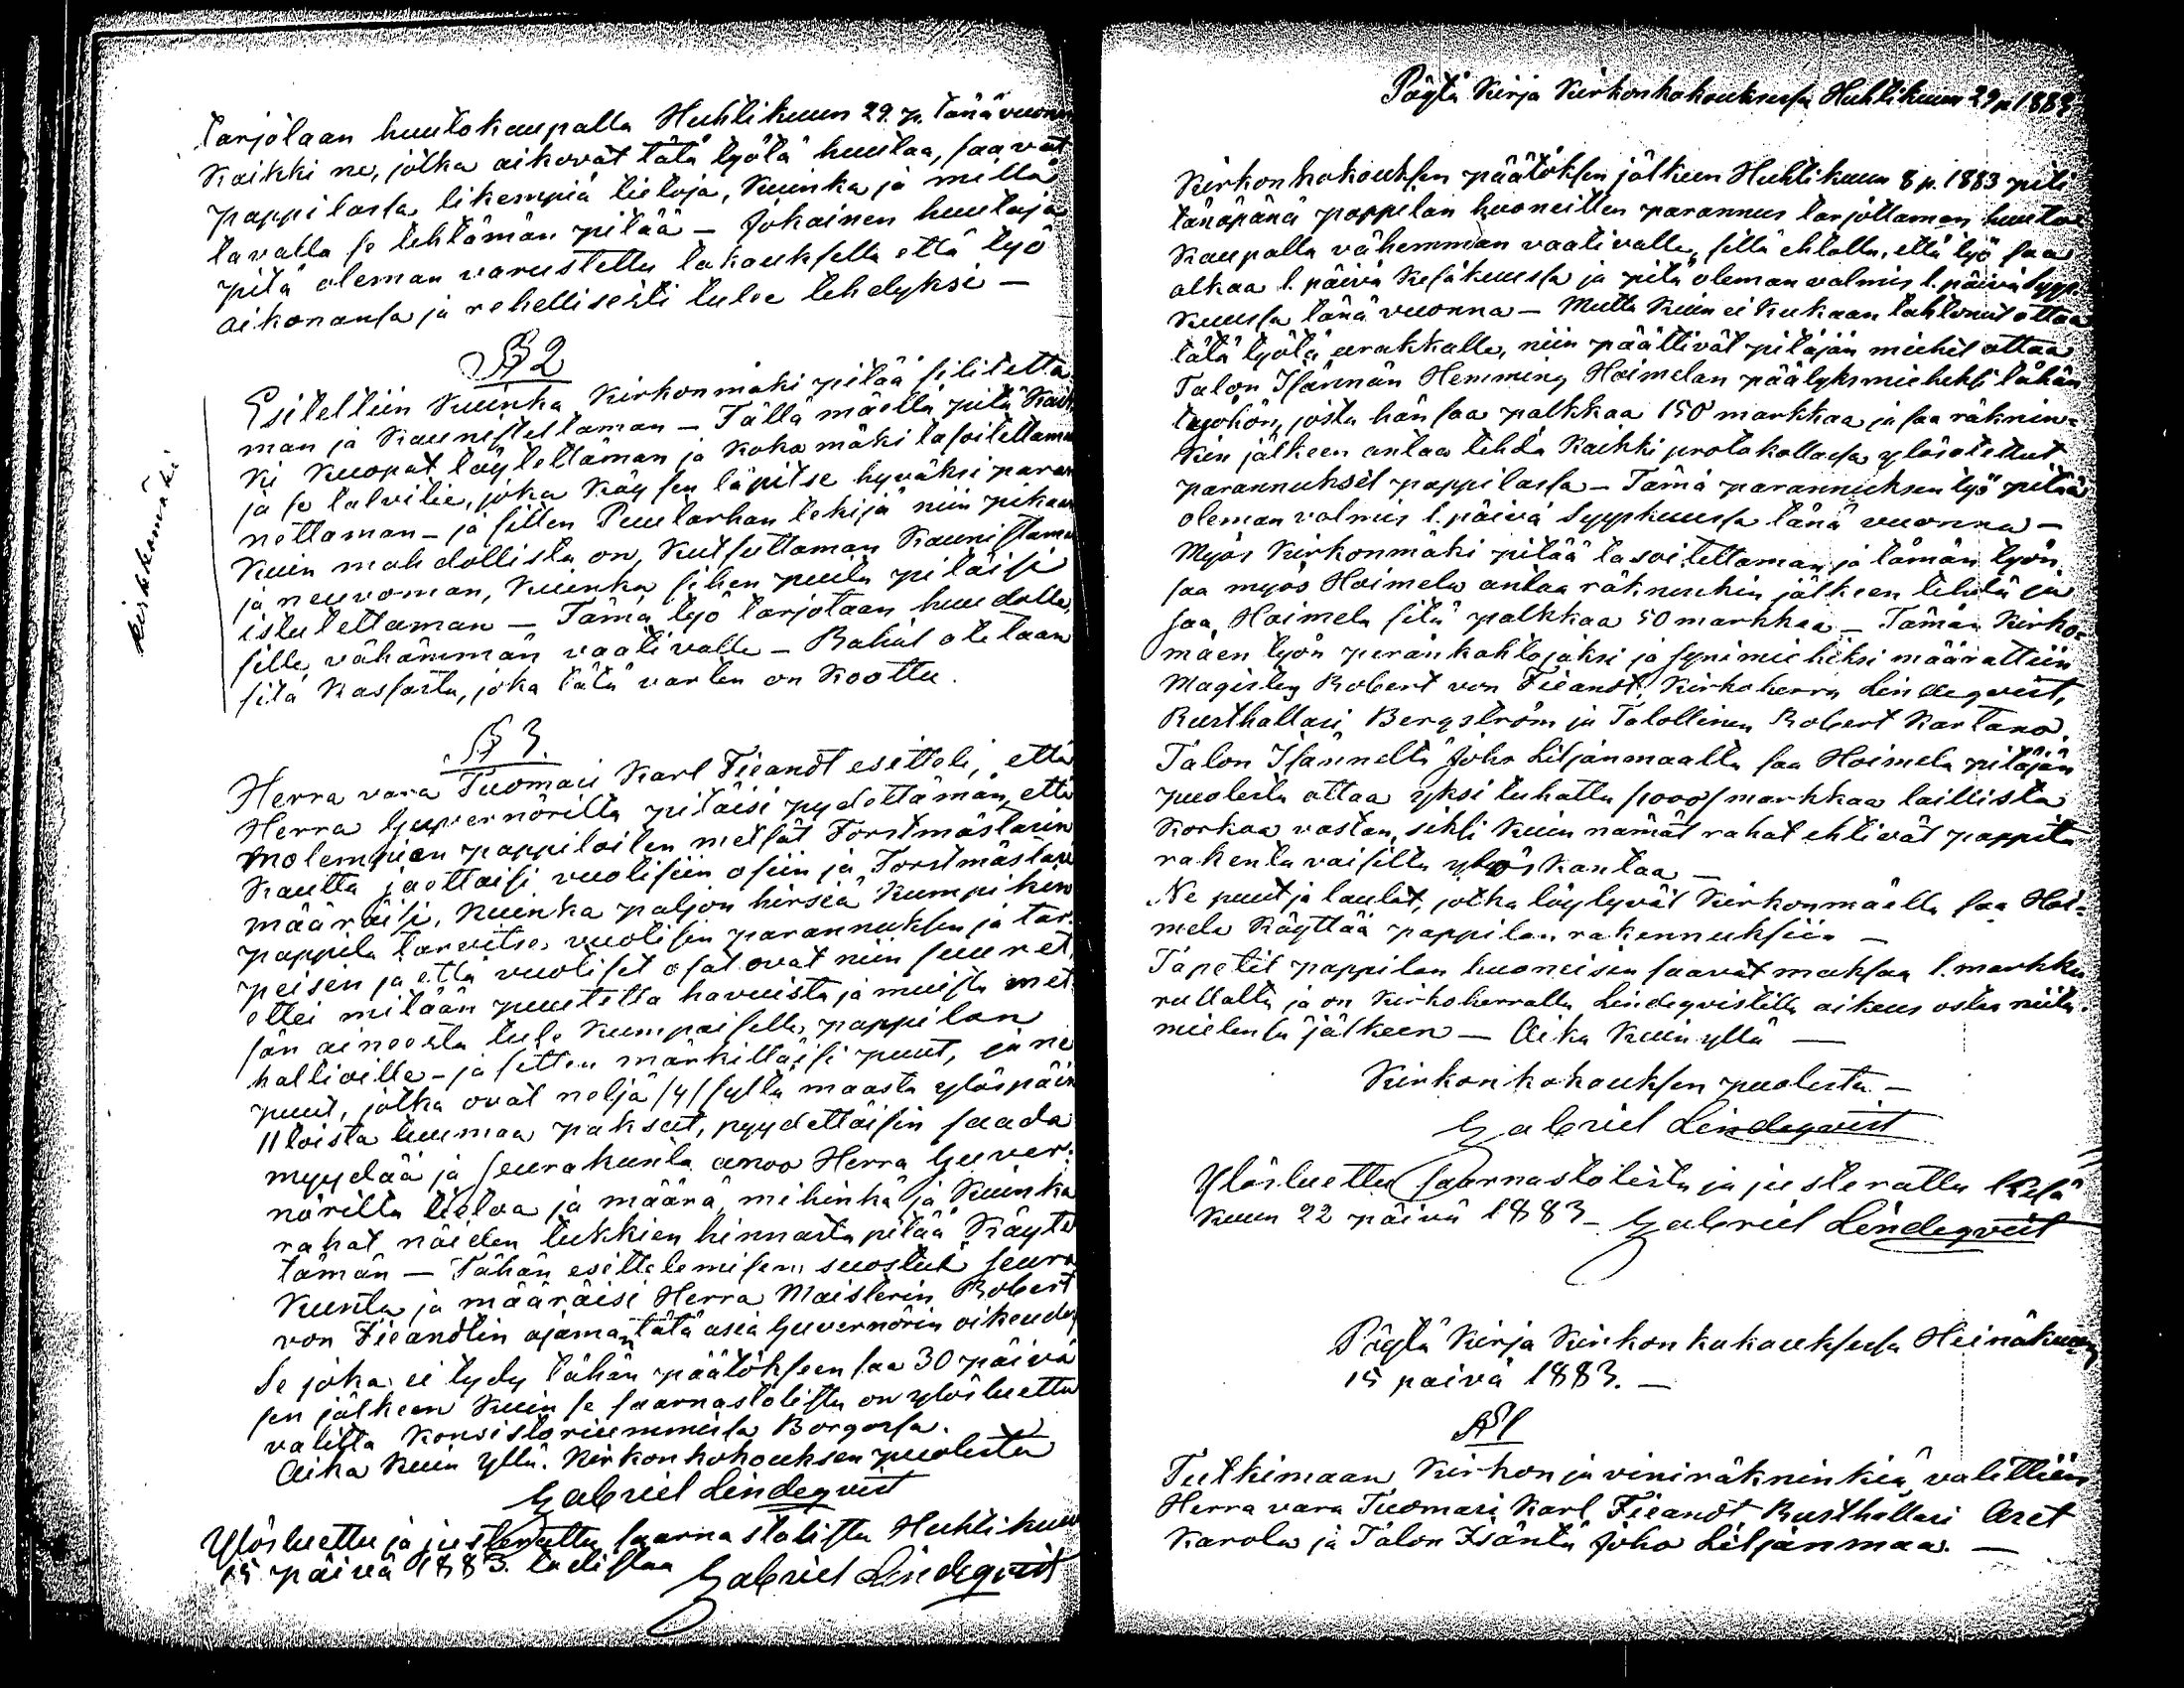 tarjotaan huutokaupalla Huhtikuun 29. p. tänä vuonna
Kaikki ne, jotka aikovat tätä työtä huutaa, saavat
pappilassa likempiä tietoja, kuinka ja millä
tavalla se tehtämän pitää — Jokainen huutaja
pitä oleman varustettu takauksella että työ
aikonansa ja rehellisesti tulee tehdyksi —
§ 2
Esiteltiin kuinka Kirkonmäki pitää silitettä
man ja kaunistettaman — Tällä mäellä pitä kaik
ki kuopat täytettämän ja koko mäki tasoitettaman
ja se talvitie, joka käy sen läpitse hyväksi paran
nettaman — ja sitten Puutarhan tekijä niin pikaan
kuin mahdollista on, kutsuttaman kaunistama
ja neuvoman, kuinka sihen puita pitäisi
istutettaman — Tämä työ tarjotaan huudolla
sille, vähämmän vaativalle — Rahat otetaan
sitä kassasta, joka tätä varten on koottu.
kirkkomäki
§ 3.
Herra vara Tuomari Karl Fieandt esitteli, että
Herra Guvernörilta pitäisi pydettämän, että
molempien pappiloiten metsät Forstmästarin
kautta jaottaisi vuolisiin osiin ja Forstmästari
määräisi, kuinka paljon hirsiä kumpikin
pappila tarvitsee vuolisen parannuksen ja tar
peisin ja että vuoliset osat ovat niin suuret,
ettei mitään puutetta havuista ja muista met
sän aineesta tule kumpaiselle pappilan
haltioille — ja sitten märkittäisi puut, ja ne
puut, jotka ovat neljä /4/ syltä maasta ylöspäin
11 toista tuumaa paksut, pyydettäisin saada
myydää ja seurakunta anoo Herra Guver-
nörilta tietoa ja määrä, mihinkä ja kuinka
rahat näiden tukkien hinnasta pitää käytet
tämän — Tähän esittelemisen suostui seura
kunta ja määräisi Herra Maisterin Robert
von Fieandtin ajaman tätä asia Guvernörin oikeudes
Se joka ei tydy tähän päätökseen saa 30 päivä
sen jälkeen kuin se saarnastolista on ylösluettu
valitta Konsistoriummissa Borgossa.
Aika kuin yllä. Kirkonkokouksen puolesta
Gabriel Lindeqvist
Ylösluettu ja justerattu saarnastolista Huhtikuun
15 päivä 1883. todistaa Gabriel Lindeqvist
Pöytä Kirja Kirkonkokouksessa Huhtikuun 29 p 1883
Kirkonkokouksen päätöksen jälkeen Huhtikuun 8 p. 1883 piti
tänäpänä pappilan huoneitten parannus tarjottaman huuto
kaupalla vähemmän vaativalle, sillä ehtolla, että työ saa
alkaa 1. päivä Kesäkuussa ja pitä oleman valmis 1. päivä Syys-
kuussa tänä vuonna — Mutta kuin ei kukaan tahtonut ottaa
tätä työtä urakkalle, niin päättivät pitäjän miehet ottaa
Talon Isännän Hemming Hoimelan päälyksmieheksi tähän
työhön, josta hän saa palkkaa 150 markkaa ja saa räknin-
kin jälkeen antaa tehdä kaikki protokollassa ylösotetut
parannukset pappilassa — Tämä parannuksen työ pitää
oleman valmis 1. päivä Syyskuussa tänä vuonna —
Myös Kirkonmäki pitää tasoitettaman ja tämän työn
saa myös Hoimela antaa räkninkin jälkeen tehdä ja
saa Hoimela sitä palkkaa 50 markkaa — Tämän Kirko-
mäen työn peränkahtojaksi ja synimieheksi määrättiin
Magister Robert von Fieandt, Kirkoherra Lindeqvist,
Rusthollari Bergström ja Talollinen Robert Kartano.
Talon Isännältä Joho Liljanmaalta saa Hoimela pitäjän
puolesta ottaa yksi tuhatta /1000/ markkaa laillista
korkoa vastan, siksi kuin nämät rahat ehtivät pappila
rakentavaisilta ylöskantaa —
Ne puut ja laudat, jotka löytyvät Kirkonmäellä saa Hoi-
mela käyttää pappilan rakennuksiin —
Tapetit pappilan huoneisen saavat maksaa 1. markka
rullalta ja on Kirkoherralla Lindeqvistillä oikeus ostaa niitä
mielensä jälkeen — Aika kuin yllä —
Kirkonkokouksen puolesta —
Gabriel Lindeqvist
Ylösluettu saarnastolista ja justerattu Kesä
kuun 22 päivä 1883 — Gabriel Lindeqvist
Pöytä Kirja Kirkonkokouksessa Heinäkuun
15 päivä 1883. —
§ 1
Tutkimaan Kirkon ja viniräkninkiä valittiin
Herra vara Tuomari Karl Fieandt, Rusthollari Aret
Karola ja Talon Isäntä Joho Liljanmaa. —